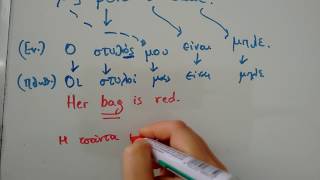 (Εν.) Ο στυλός μου είναι μπλε.
(Πληθ.) Οι στυλοί μας είναι μπλε
Her bag is red.
Η τσάντα